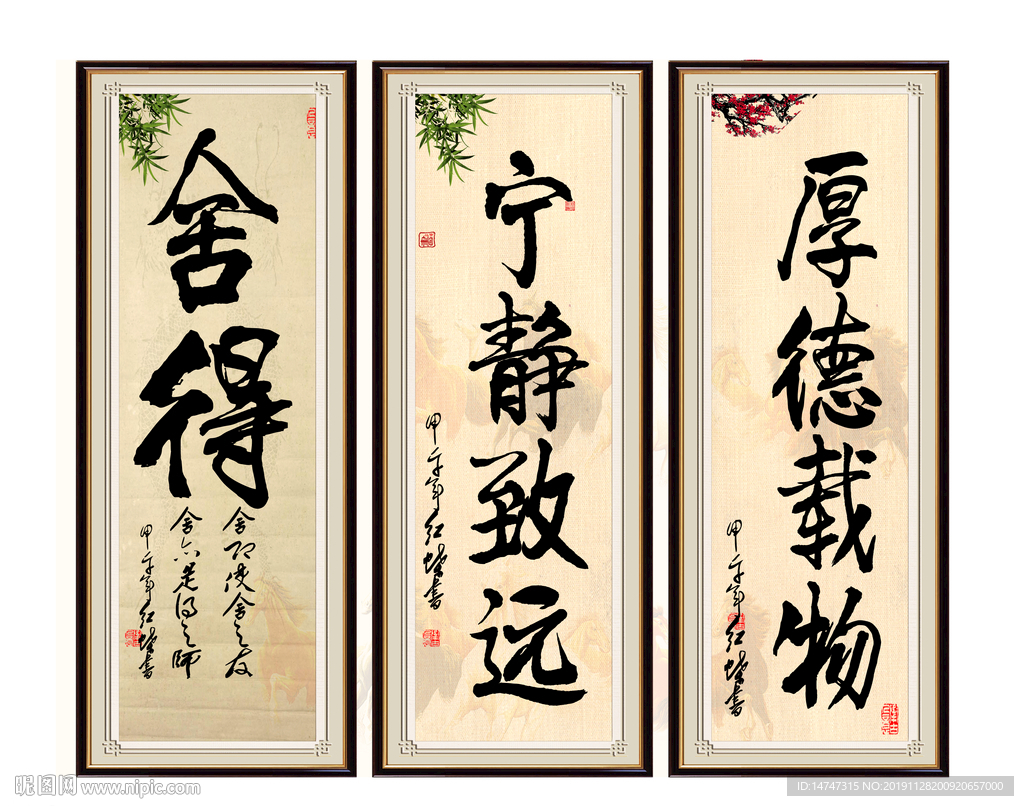 舍得
舍使舍之友
舍亦是得之师
甲午年红书
宁静致远
甲午年红书
厚德载物
甲午年红书
昵图网 www.nipic.com
ID:14747315 NO:20191128200920657000